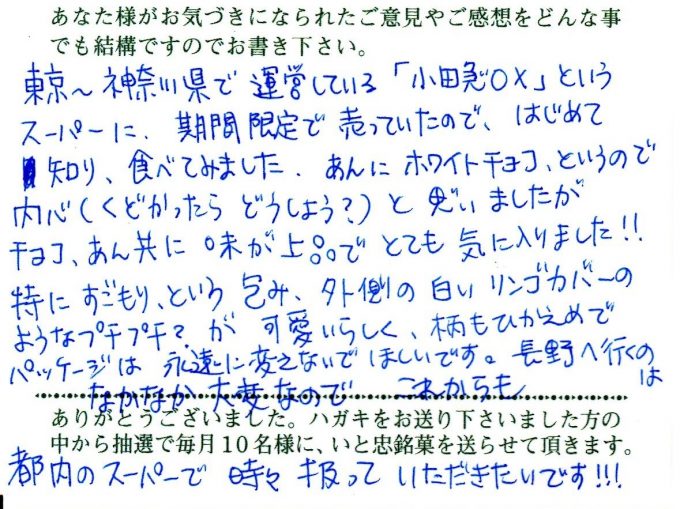 あなた様がお気づきになられたご意見やご感想をどんな事
でも結構ですのでお書き下さい。
東京～神奈川県で運営している「小田急OX」という
スーパーに、期間限定で売っていたので、はじめて
知り、食べてみました．あんにホワイトチョコ、というので
内心(くどかったらどうしよう?)と思いましたが
チョコ、あん共に味が上品でとても気に入りました!!
特にすごもり、という包み、外側の白いリンゴカバーの
ようなプチプチ?が可愛いらしく、柄もひかえめで
パッケージは永遠に変えないでほしいです。長野へ行くのは
なかなか大変なので これからも
ありがとうございました。ハガキをお送り下さいました方の
中から抽選で毎月10名様に、いと忠銘菓を送らせて頂きます。
都内のスーパーで時々扱っていただきたいです!!!